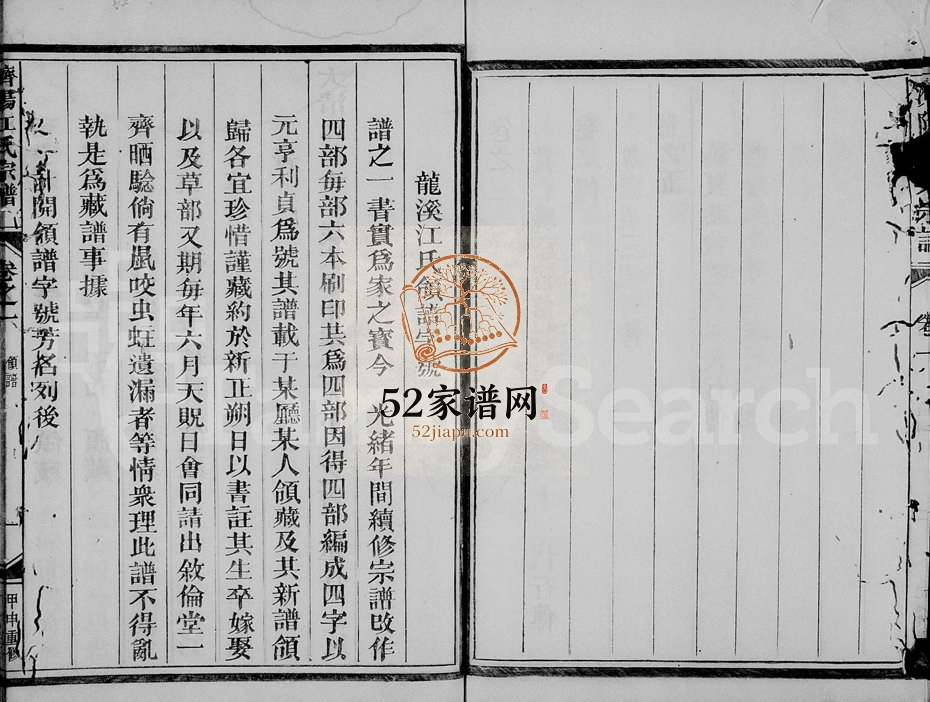 龍溪江氏領譜字號
譜之一書實爲家之寳今 光緒年間續修宗譜改作
四部每部六本刷印共爲四部因得四部編成四字以
元亨利貞爲號其譜載于某廳某人領藏及其新譜領
歸各宜珍惜謹藏約於新正朔日以書註其生卒嫁娶
以及草部又期每年六月天貺日會同請出敘倫堂一
齊晒騐倘有鼠咬虫蛀遺漏者等情衆理此譜不得亂
執是爲藏譜事據
計開領譜字號芳名列後
濟陽江氏宗譜
卷之一
領譜
一
甲申重修
宗譜
卷
52家谱网
52jiapu.com
Search